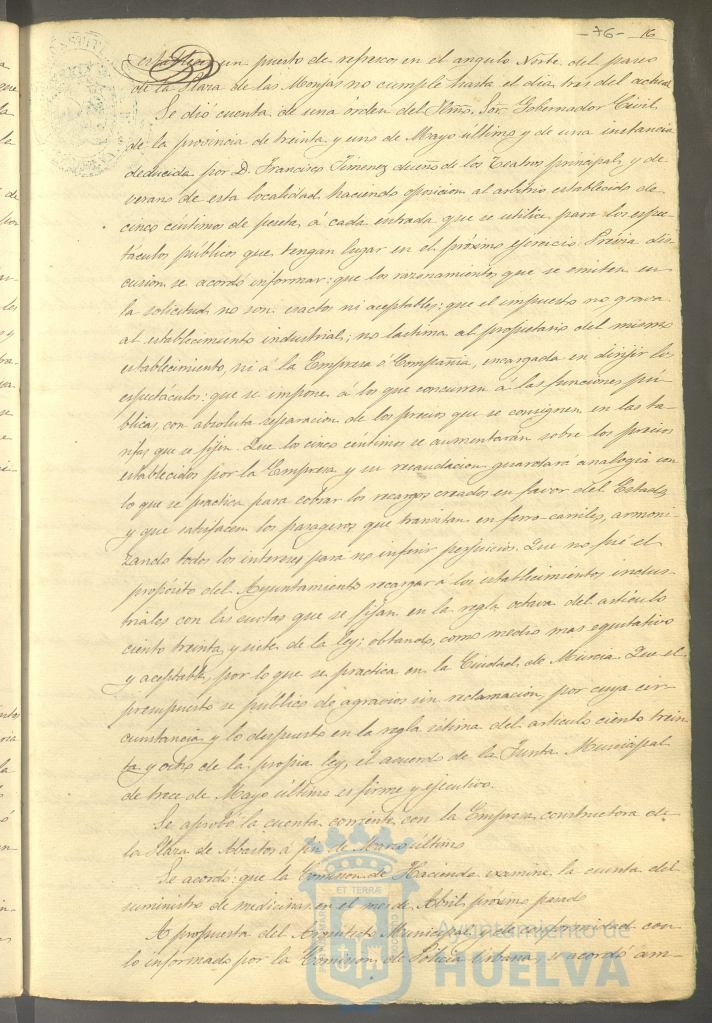 -76- 16
un puesto de refresco, en el angulo Norte del paseo
de la Plaza de las Monjas no cumple hasta el dia tres del actual
Se dió cuenta de una órden del Ilmo. Sor. Gobernador Civil
de la provincia de treinta y uno de Mayo último y de una instancia
deducida por D. Francisco Jimenez dueño de los Teatros principal y de
verano de esta localidad, haciendo oposicion al arbitrio establecido de
cinco centimos de peseta, á cada entrada que se utilice para los espec-
táculos públicos que tengan lugar en el próximo ejercicio. Previa dis-
cusion, se acordó informar: que los razonamientos que se emiten en
la solicitud no son esactos ni aceptables: que el impuesto no grava
al establecimiento industrial; no lastima al propietario del mismo
establecimiento, ni á la Empresa ó Compañia, encargada en dirijir los
espectáculos: que se impone á los que concurren á las funciones pú-
blicas, con absoluta separacion de los precios que se consignen en las ta-
rifas que se fijen. Que los cinco centimos se aumentarán sobre los precios
establecidos por la Empresa y su recaudacion guardará analogia con
lo que se practica para cobrar los recargos creados en favor del Estado,
y que satisfacen los pasageros que transitan en ferro-carriles, armoni-
zando todos los intereses para no inferir perjuicios. Que no fué el
propósito del Ayuntamiento recargar á los establecimientos indus-
triales con las cuotas que se fijan en la regla octava del artículo
ciento treinta y siete de la ley: obtando, como medio mas equitativo
y aceptable, por lo que se practica en la Ciudad de Murcia. Que el
presupuesto se publicó de agravios sin reclamacion, por cuya cir-
cunstancia y lo dispuesto en la regla sétima del articulo ciento trein-
ta y ocho de la propia ley, el acuerdo de la Junta Municipal
de trece de Mayo último es firme y ejecutivo.
Se aprobó la cuenta corriente con la Empresa constructora de
la Plaza de Abastos á fin de Marzo último
Se acordó: que la Comision de Hacienda examine la cuenta del
suministro de medicinas en el mes de Abril próximo pasado
A propuesta del Arquitecto Municipal y de conformidad con
lo informado por la Comision de Policia Urbana, se acordó am-
Ayuntamiento de
HUELVA